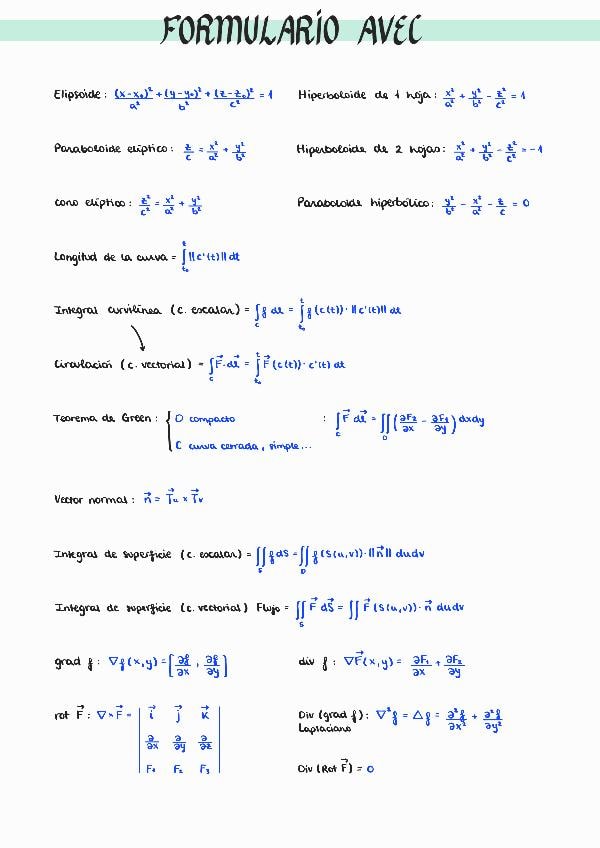 FORMULARIO AVEC
Elipsoide: (x-x₀)²/a² + (y-y₀)²/b² + (z-z₀)²/c² = 1
Hiperboloide de 1 hoja: x²/a² + y²/b² - z²/c² = 1
Paraboloide elíptico: z/c = x²/a² + y²/b²
Hiperboloide de 2 hojas: x²/a² + y²/b² - z²/c² = -1
cono elíptico: z²/c² = x²/a² + y²/b²
Paraboloide hiperbólico: y²/b² - x²/a² - z/c = 0
Longitud de la curva = ∫_{t₀}^{t} ||c'(t)|| dt
Integral curvilínea (c. escalar) = ∫_c f dl = ∫_{t₀}^{t} f (c(t)) · ||c'(t)|| dt
Circulación (c. vectorial) = ∫_c F⃗ · dl⃗ = ∫_{t₀}^{t} F⃗ (c(t)) · c'(t) dt
Teorema de Green: { D compacto : ∫_c F⃗ dl⃗ = ∬_D (∂F₂/∂x - ∂F₁/∂y) dxdy
C curva cerrada, simple...
Vector normal: n⃗ = T⃗u × T⃗v
Integral de superficie (c. escalar) = ∬_S f dS = ∬_D f (S(u,v)) · ||n⃗|| dudv
Integral de superficie (c. vectorial) Flujo = ∬_S F⃗ dS⃗ = ∬ F⃗ (S(u,v)) · n⃗ dudv
grad f: ∇f (x,y) = [∂f/∂x , ∂f/∂y]
div f: ∇F⃗(x,y) = ∂F₁/∂x + ∂F₂/∂y
rot F⃗: ∇×F⃗ = | i⃗ j⃗ k⃗ |
∂/∂x ∂/∂y ∂/∂z
F₁ F₂ F₃
Div (grad f): ∇²f = Δf = ∂²f/∂x² + ∂²f/∂y²
Laplaciano
Div (Rot F⃗) = 0